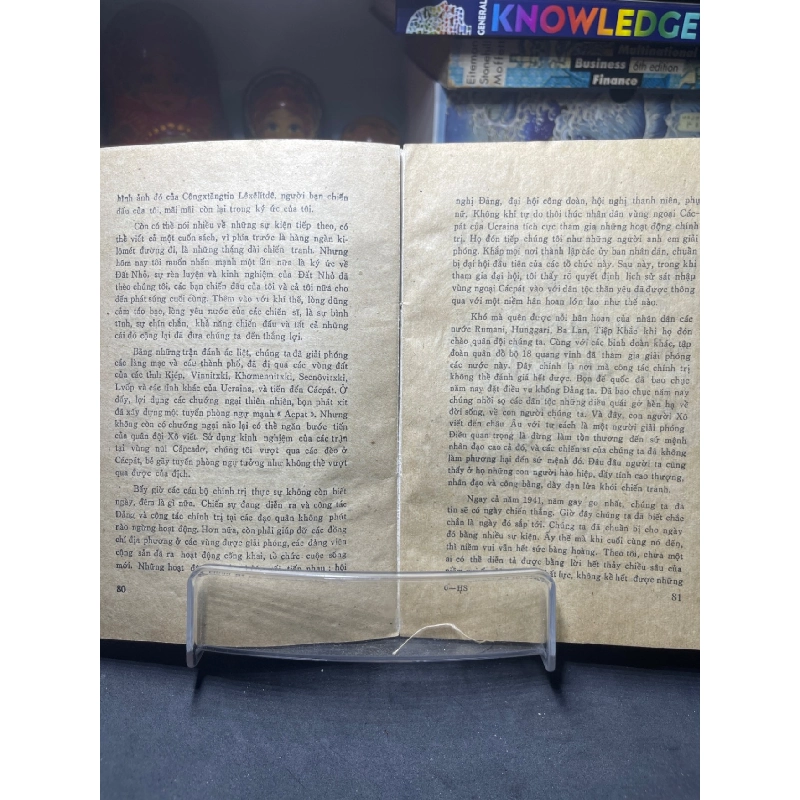 GENERAL KNOWLEDGE
Eiteman
Stonehill
Moffett
Multinational
Business
Finance
6th edition
hình ảnh đó của Côngxtăngtin Lêxêlitdê, người bạn chiến
đấu của tôi, mãi mãi còn lại trong ký ức của tôi.
Còn có thể nói nhiều về những sự kiện tiếp theo, có
thể viết cả một cuốn sách, vì phía trước là hàng ngàn ki-
lômét đường đi, là những tháng dài chiến tranh. Nhưng
hôm nay tôi muốn nhấn mạnh một lần nữa là ký ức về
Đất Nhỏ, sự rèn luyện và kinh nghiệm của Đất Nhỏ đã
theo chúng tôi, các bạn chiến đấu của tôi và cả tôi nữa cho
đến phát súng cuối cùng. Thêm vào với khí thế, lòng dũng
cảm táo bạo, lòng yêu nước của các chiến sĩ, là sự bình
tĩnh, sự chín chắn, khả năng chiến đấu và tất cả những
cái đó cộng lại đã đưa chúng ta đến thắng lợi.
Bằng những trận đánh ác liệt, chúng ta đã giải phóng
các làng mạc và các thành phố, đã đi qua các vùng đất
của các tỉnh Kiép, Vinnitxki, Khơmennitxki, Secnôvitxki,
Lvốp và các tỉnh khác của Ucraina, và tiến đến Cácpát. Ở
đấy, lợi dụng các chướng ngại thiên nhiên, bọn phát xít
đã xây dựng một tuyến phòng ngự mạnh « Acpat ». Nhưng
không còn có chướng ngại nào lại có thể ngăn bước tiến
của quân đội Xô viết. Sử dụng kinh nghiệm của các trận
tại vùng núi Cápcadơ, chúng tôi vượt qua các đèo ở
Cácpát, bẻ gãy tuyến phòng ngự tưởng như không thể vượt
qua được của địch.
Bấy giờ các cán bộ chính trị thực sự không còn biết
ngày, đêm là gì nữa. Chiến sự đang diễn ra và công tác
Đảng và công tác chính trị tại các đạo quân không phút
nào ngừng hoạt động. Hơn nữa, còn phải giúp đỡ các đồng
chí địa phương ở các vùng được giải phóng, các đảng viên
cộng sản đã ra hoạt động công khai, tổ chức cuộc sống
mới. Những hoạt tiếp nhau : hội
80
nghị Đảng, đại hội công đoàn, hội nghị thanh niên, phụ
nữ. Không khí tự do thôi thúc nhân dân vùng ngoại Các-
pát của Ucraina tích cực tham gia những hoạt động chính
trị. Họ đón tiếp chúng tôi như những người anh em giải
phóng. Khắp mọi nơi thành lập các ủy ban nhân dân, chuẩn
bị đại hội đầu tiên của các tổ chức này. Sau này, trong khi
tham gia đại hội, tôi thấy rõ quyết định lịch sử sát nhập
vùng ngoại Cácpát vào với dân tộc thân yêu đã được thông
qua với một niềm hân hoan lớn lao như thế nào.
Khó mà quên được nỗi hân hoan của nhân dân các
nước Rumani, Hunggari, Ba Lan, Tiệp Khắc khi họ đón
chào quân đội chúng ta. Cùng với các binh đoàn khác, tập
đoàn quân đổ bộ 18 quang vinh đã tham gia giải phóng
các nước này. Đây chính là nơi mà công tác chính trị
không thể đánh giá hết được. Bọn đế quốc đã bao chục
năm nay đặt điều vu khống Đảng ta. Đã bao chục năm nay
chúng nhồi sọ các dân tộc những điều quái gở hèn hạ về
đời sống, về con người chúng ta. Và đây, con người Xô
viết đến châu Âu với tư cách là một người giải phóng
Điều quan trọng là đừng làm tổn thương đến sứ mệnh
nhân đạo cao cả đó, và các chiến sĩ của chúng ta đã không
làm phương hại đến sứ mệnh đó. Đâu đâu người ta cũng
thấy ở họ những con người hào hiệp, đầy tính cao thượng,
nhân đạo và công bằng, dày dạn lửa khói chiến tranh.
Ngay cả năm 1941, năm gay go nhất, chúng ta đã
tin sẽ có ngày chiến thắng. Giờ đây chúng ta đã biết chắc
chắn là ngày đó sắp tới. Chúng ta đã chuẩn bị cho ngày
đó bằng nhiều sự kiện. Ấy thế mà khi cuối cùng nó đến,
thì niềm vui vẫn hết sức bàng hoàng. Theo tôi, chưa một
ai có thể diễn tả được bằng lời hết thảy chiều sâu của
lực, không kể hết được những
6—HS
81